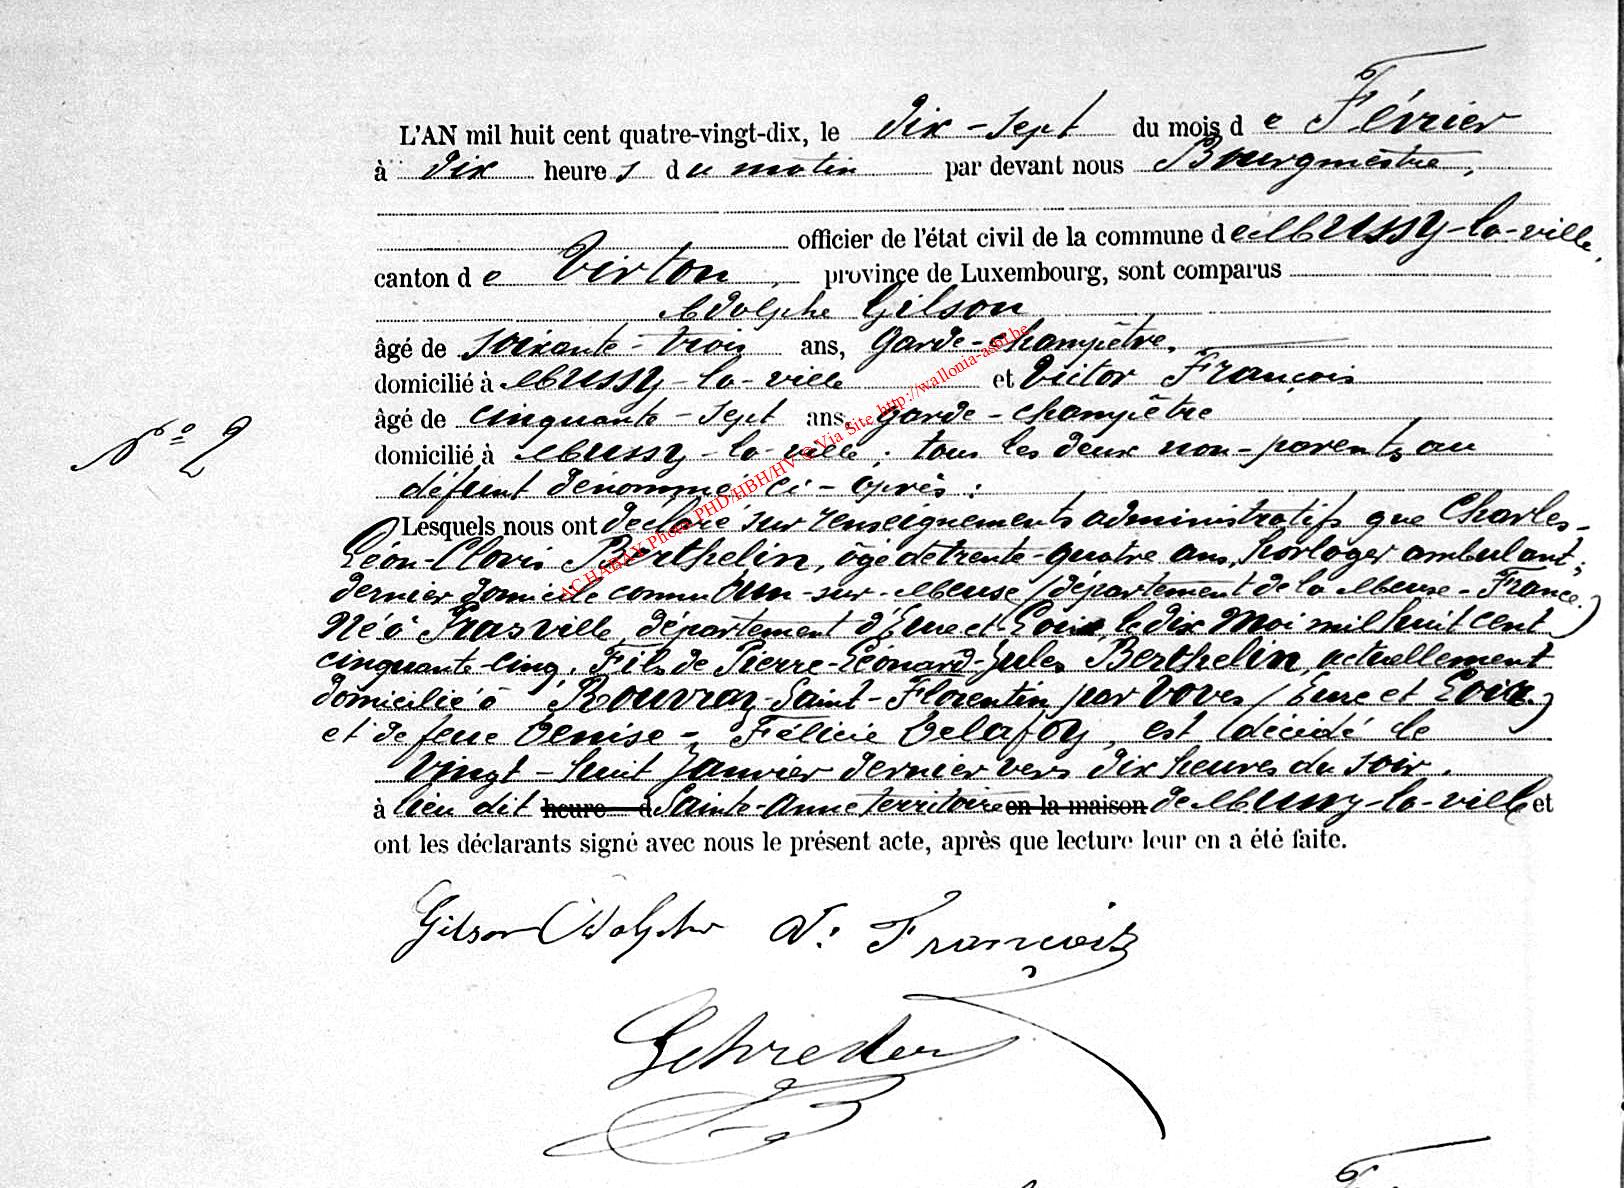 L'AN mil huit cent quatre-vingt-dix, le dix-sept du mois de Février
à dix heures du matin par devant nous Bourgmestre,
officier de l'état civil de la commune de Mussy-la-ville,
canton de Virton, province de Luxembourg, sont comparus
Adolphe Gilson
âgé de soixante-trois ans, Garde-champêtre,
domicilié à Mussy-la-ville et Victor François
âgé de cinquante-sept ans, garde-champêtre
N° 2
domicilié à Mussy-la-ville ; tous les deux non-parents au
défunt dénommé ci-après :
Lesquels nous ont déclaré sur renseignements administratifs que Charles-
Léon-Clovis Berthelin, âgé de trente-quatre ans, horloger ambulant ;
dernier domicile connu Dun-sur-Meuse (département de la Meuse-France.)
Né à Prasville, département d'Eure et Loir, le dix Mai mil huit cent
cinquante-cinq. Fils de Pierre-Léonard-Jules Berthelin, actuellement
domicilié à Rouvray-Saint-Florentin par Voves (Eure et Loir.)
et de feue Denise-Félicie Delafoy, est décédé le
vingt-huit Janvier dernier vers dix heures du soir.
à lieu dit heure d Sainte-Anne territoire en la maison de Mussy-la-ville et
ont les déclarants signé avec nous le présent acte, après que lecture leur en a été faite.
Gilson Adolphe V: François
Schreder
AC HABAY Photos PHD/HBH/HV © Via Site http://wallonia-asbl.be